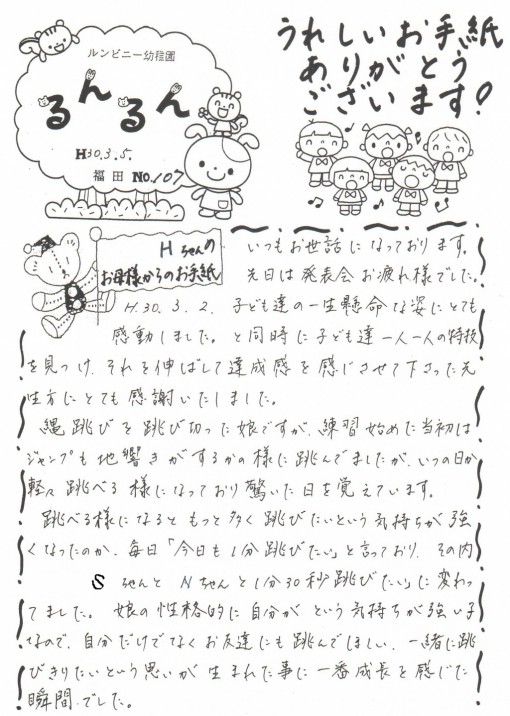 ルンビニー幼稚園
るんるん
H30.3.5.
福田 No.107
うれしいお手紙
ありがとう
ございます!
Hちゃんの
お母様からのお手紙
いつもお世話になっております。
先日は発表会お疲れ様でした。
H.30.3.2. 子ども達の一生懸命な姿にとても
感動しました。と同時に子ども達一人一人の特技
を見つけ、それを伸ばして達成感を感じさせて下さった先
生方にとても感謝いたしました。
縄跳びを跳び切った娘ですが、練習始めた当初は
ジャンプも地響きがするかの様に跳んでましたが、いつの日か
軽々跳べる様になっており驚いた日を覚えています。
跳べる様になるともっと多く跳びたいという気持ちが強
くなったのか、毎日「今日も1分跳びたい」と言っており、その内
SちゃんとNちゃんと1分30秒跳びたい」に変わっ
てました。娘の性格的に自分がという気持ちが強い子
なので、自分だけでなくお友達にも跳んでほしい、一緒に跳
びきりたいという思いが生まれた事に一番成長を感じた
瞬間でした。